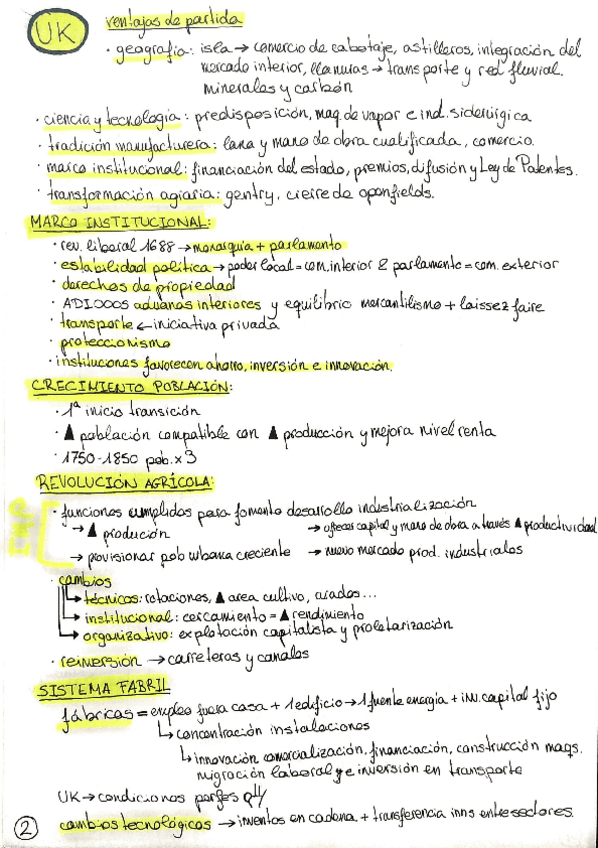 UK
ventajas de partida
· geografia: isla → comercio de cabotaje, astilleros, integración del
mercado interior, llanuras → transporte y red fluvial.
minerales y carbón
· ciencia y tecnología: predisposición, maq. de vapor e ind. siderúrgica
· tradición manufacturera: lana y mano de obra cualificada, comercio.
· marco institucional: financiación del estado, premios, difusión y Ley de Patentes.
· transformación agraria: gentry, cierre de openfields.
MARCO INSTITUCIONAL:
· rev. liberal 1688 → monarquia + parlamento
· estabilidad política → poder local = com. interior & parlamento = com. exterior
· derechos de propiedad
· ADIOOOS aduanas interiores y equilibrio mercantilismo + laissez faire
· transporte ← iniciativa privada
· proteccionismo
· instituciones favorecen ahorro, inversión e innovación.
CRECIMIENTO POBLACIÓN:
· 1ª inicio transición
· ▲ población compatible con ▲ producción y mejora nivel renta
· 1750-1850 pob. x 3
REVOLUCIÓN AGRÍCOLA:
· funciones cumplidas para fomento desarrollo industrialización
→ ▲ produción → ofrecer capital y mano de obra a través ▲ productividad
→ provisionar pob urbana creciente → nuevo mercado prod. industriales
· cambios
→ técnicos: rotaciones, ▲ area cultivo, arados...
→ institucional: cercamiento = ▲ rendimiento
→ organizativo: explotación capitalista y proletarización
· reinversión → carreteras y canales
SISTEMA FABRIL
fábricas = empleo fuera casa + 1 edificio → 1 fuente energía + inv. capital fijo
↳ concentración instalaciones
↳ innovación comercialización, financiación, construcción maqs.
migración laboral y e inversión en transporte
UK → condiciones perfes
cambios tecnológicos → inventos en cadena + transferencia inns entre sectores.
2